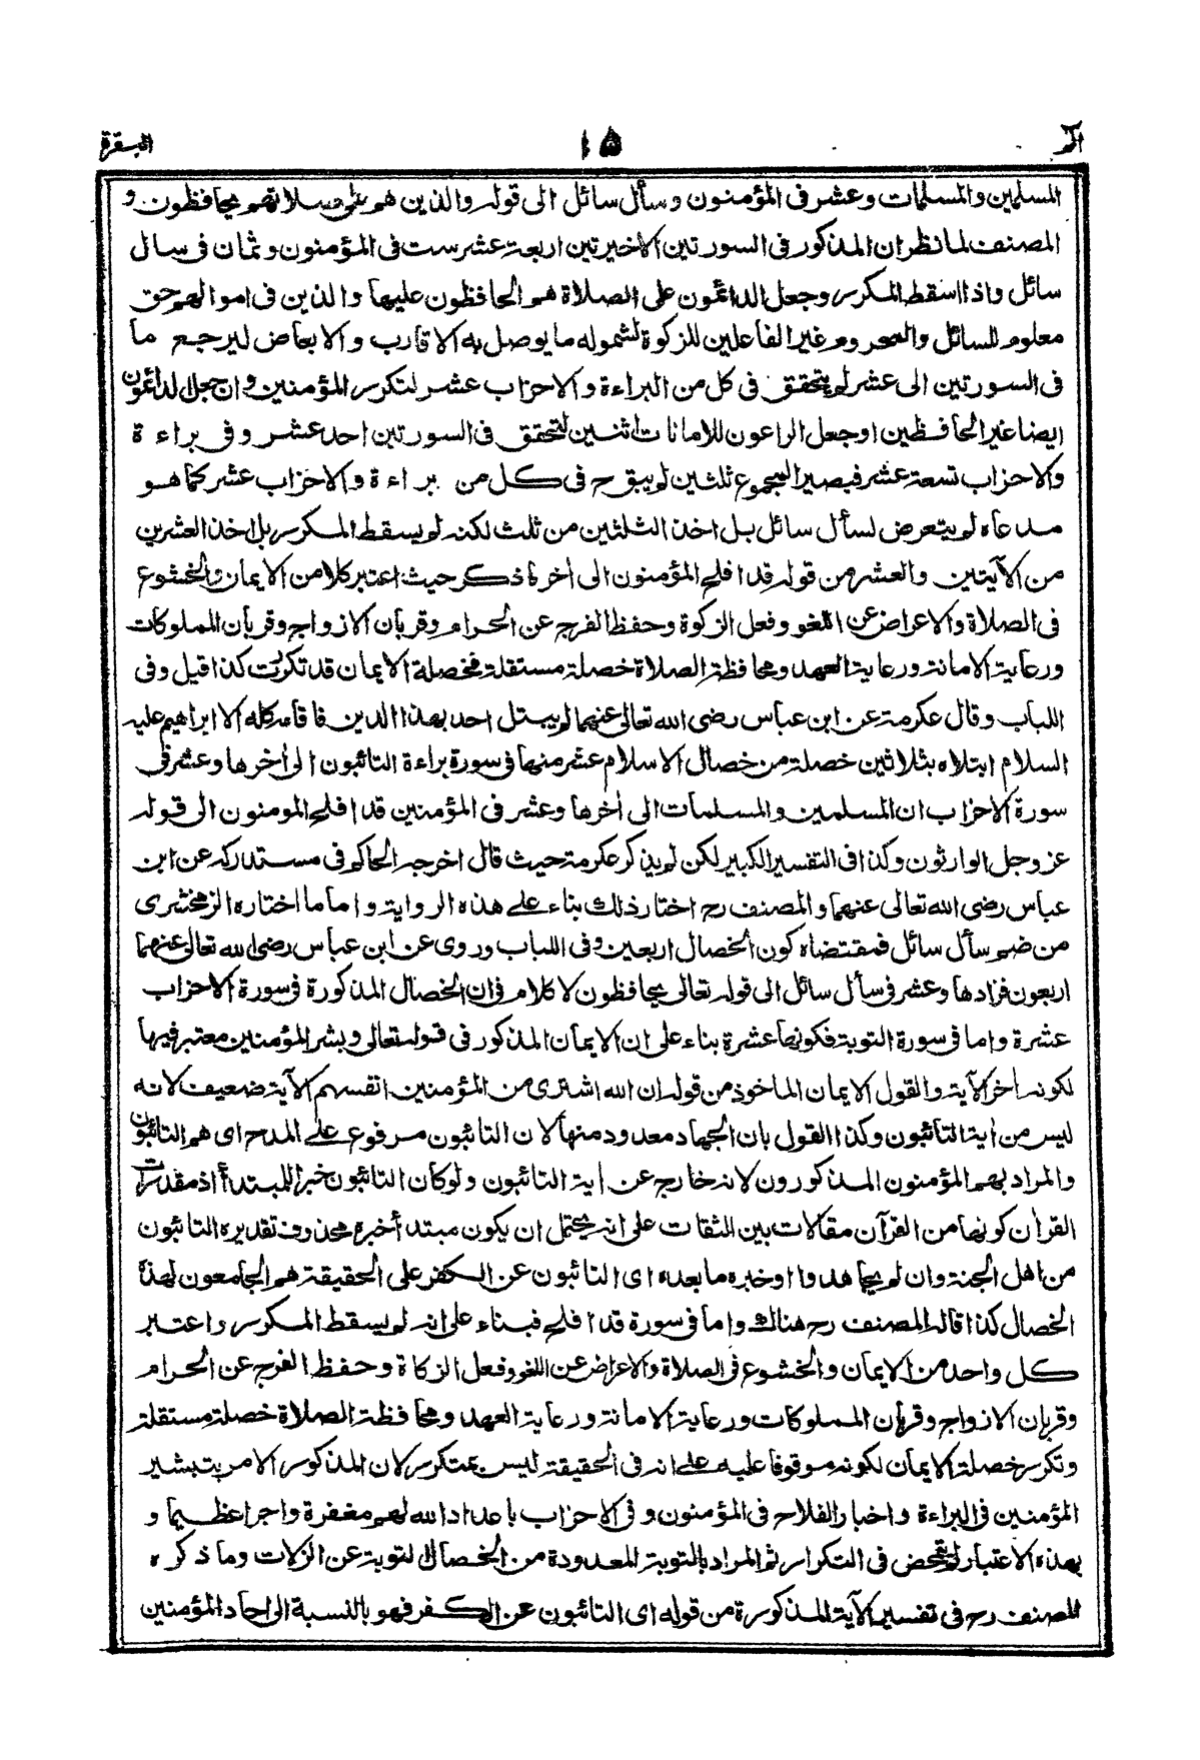 الم ١٥ البقرة
المسلمين والمسلمات وعشر فى المؤمنون وسأل سائل الى قوله والذين هم على صلاتهم يحافظون و
المصنف لما نظر ان المذكور فى السورتين الاخيرتين اربعة عشر ست فى المؤمنون وثمان فى سال
سائل واذا اسقط المكرر وجعل الدائمون على الصلاة هم الحافظون عليها والذين فى اموالهم حق
معلوم للسائل والمحروم غير الفاعلين للزكوة لشموله ما يوصل به الاقارب والابعاض ليرجع ما
فى السورتين الى عشر لم يتحقق فى كل من البراءة والاحزاب عشر لتكرر المؤمنين وان جعل الدائمون
ايضا غير الحافظين او جعل الراعون للامانات اثنين لتحقق فى السورتين احد عشر وفى براءة
والاحزاب تسعة عشر فيصير المجموع ثلثين لم يبق ح فى كل من براءة والاحزاب عشر كما هو
مدعاه لم يتعرض لسأل سائل بل اخذ الثلثين من ثلث لكنه لم يسقط المكرر بل اخذ العشرين
من الآيتين والعشر من قوله قد افلح المؤمنون الى أخر ما ذكر حيث اعتبر كلا من الايمان والخشوع
فى الصلاة والاعراض عن اللغو وفعل الزكوة وحفظ الفرج عن الحرام وقربان الازواج وقربان المملوكات
ورعاية الامانة ورعاية العهد ومحافظة الصلاة خصلة مستقلة فخصلة الايمان قد تكررت كذا قيل وفى
اللباب وقال عكرمة عن ابن عباس رضى الله تعالى عنهما لم يبتل احد بهذا الدين فاقامه كله الا ابراهيم عليه
السلام ابتلاه بثلاثين خصلة من خصال الاسلام عشر منها فى سورة براءة التائبون الى أخرها وعشر فى
سورة الاحزاب ان المسلمين والمسلمات الى أخرها وعشر فى المؤمنين قد افلح المومنون الى قوله
عز وجل الوارثون وكذا فى التفسير الكبير لكن لم يذكر عكرمة حيث قال اخرجه الحاكم فى مستدركه عن ابن
عباس رضى الله تعالى عنهما والمصنف رح اختار ذلك بناء على هذه الرواية واما ما اختاره الزمخشرى
من ضم سأل سائل فمقتضاه كون الخصال اربعين وفى اللباب وروى عن ابن عباس رضى الله تعالى عنهما
اربعون فزادها وعشر فى سأل سائل الى قوله تعالى يحافظون لا كلام فى ان الخصال المذكورة فى سورة الاحزاب
عشرة واما فى سورة التوبة فكونها عشرة بناء على ان الايمان المذكور فى قوله تعالى وبشر المؤمنين معتبر فيها
لكونه أخر الآية والقول الايمان الماخوذ من قوله ان الله اشترى من المؤمنين انفسهم الآية ضعيف لانه
ليس من أية التائبون وكذا القول بان الجهاد معدود منها لان التائبون مرفوع على المدح اى هم التائبون
والمراد بهم المؤمنون المذكورون لانه خارج عن أية التائبون ولو كان التائبون خبر اللمبتدأ اذ مقدرات
القرأن كونها من القرآن مقالات بين الثقات على انه يحتمل ان يكون مبتدأ خبره محذوف تقديره التائبون
من اهل الجنة وان لم يجاهدوا او خبره ما بعده اى التائبون عن الكفر على الحقيقة هم الجامعون لهذه
الخصال كذا قاله المصنف رح هناك واما فى سورة قد افلح فبناء على انه لم يسقط المكرر واعتبر
كل واحد من الايمان والخشوع فى الصلاة والاعراض عن اللغو وفعل الزكاة وحفظ الفرج عن الحرام
وقربان الازواج وقربان المملوكات ورعاية الامانة ورعاية العهد ومحافظة الصلاة خصلة مستقلة
وتكرر خصلة الايمان لكونه موقوفا عليه على انه فى الحقيقة ليس بمتكرر لان المذكور الامر بتبشير
المؤمنين فى البراءة واخبار الفلاح فى المؤمنون وفى الاحزاب باعداد الله لهم مغفرة واجرا عظيما و
بهذه الاعتبار لم يتمحض فى التكرار ثم المراد بالتوبة المعدودة من الخصال التوبة عن الزلات وما ذكره
المصنف رح فى تفسير الآية المذكورة من قوله اى التائبون عن الكفر فهو بالنسبة الى احاد المؤمنين